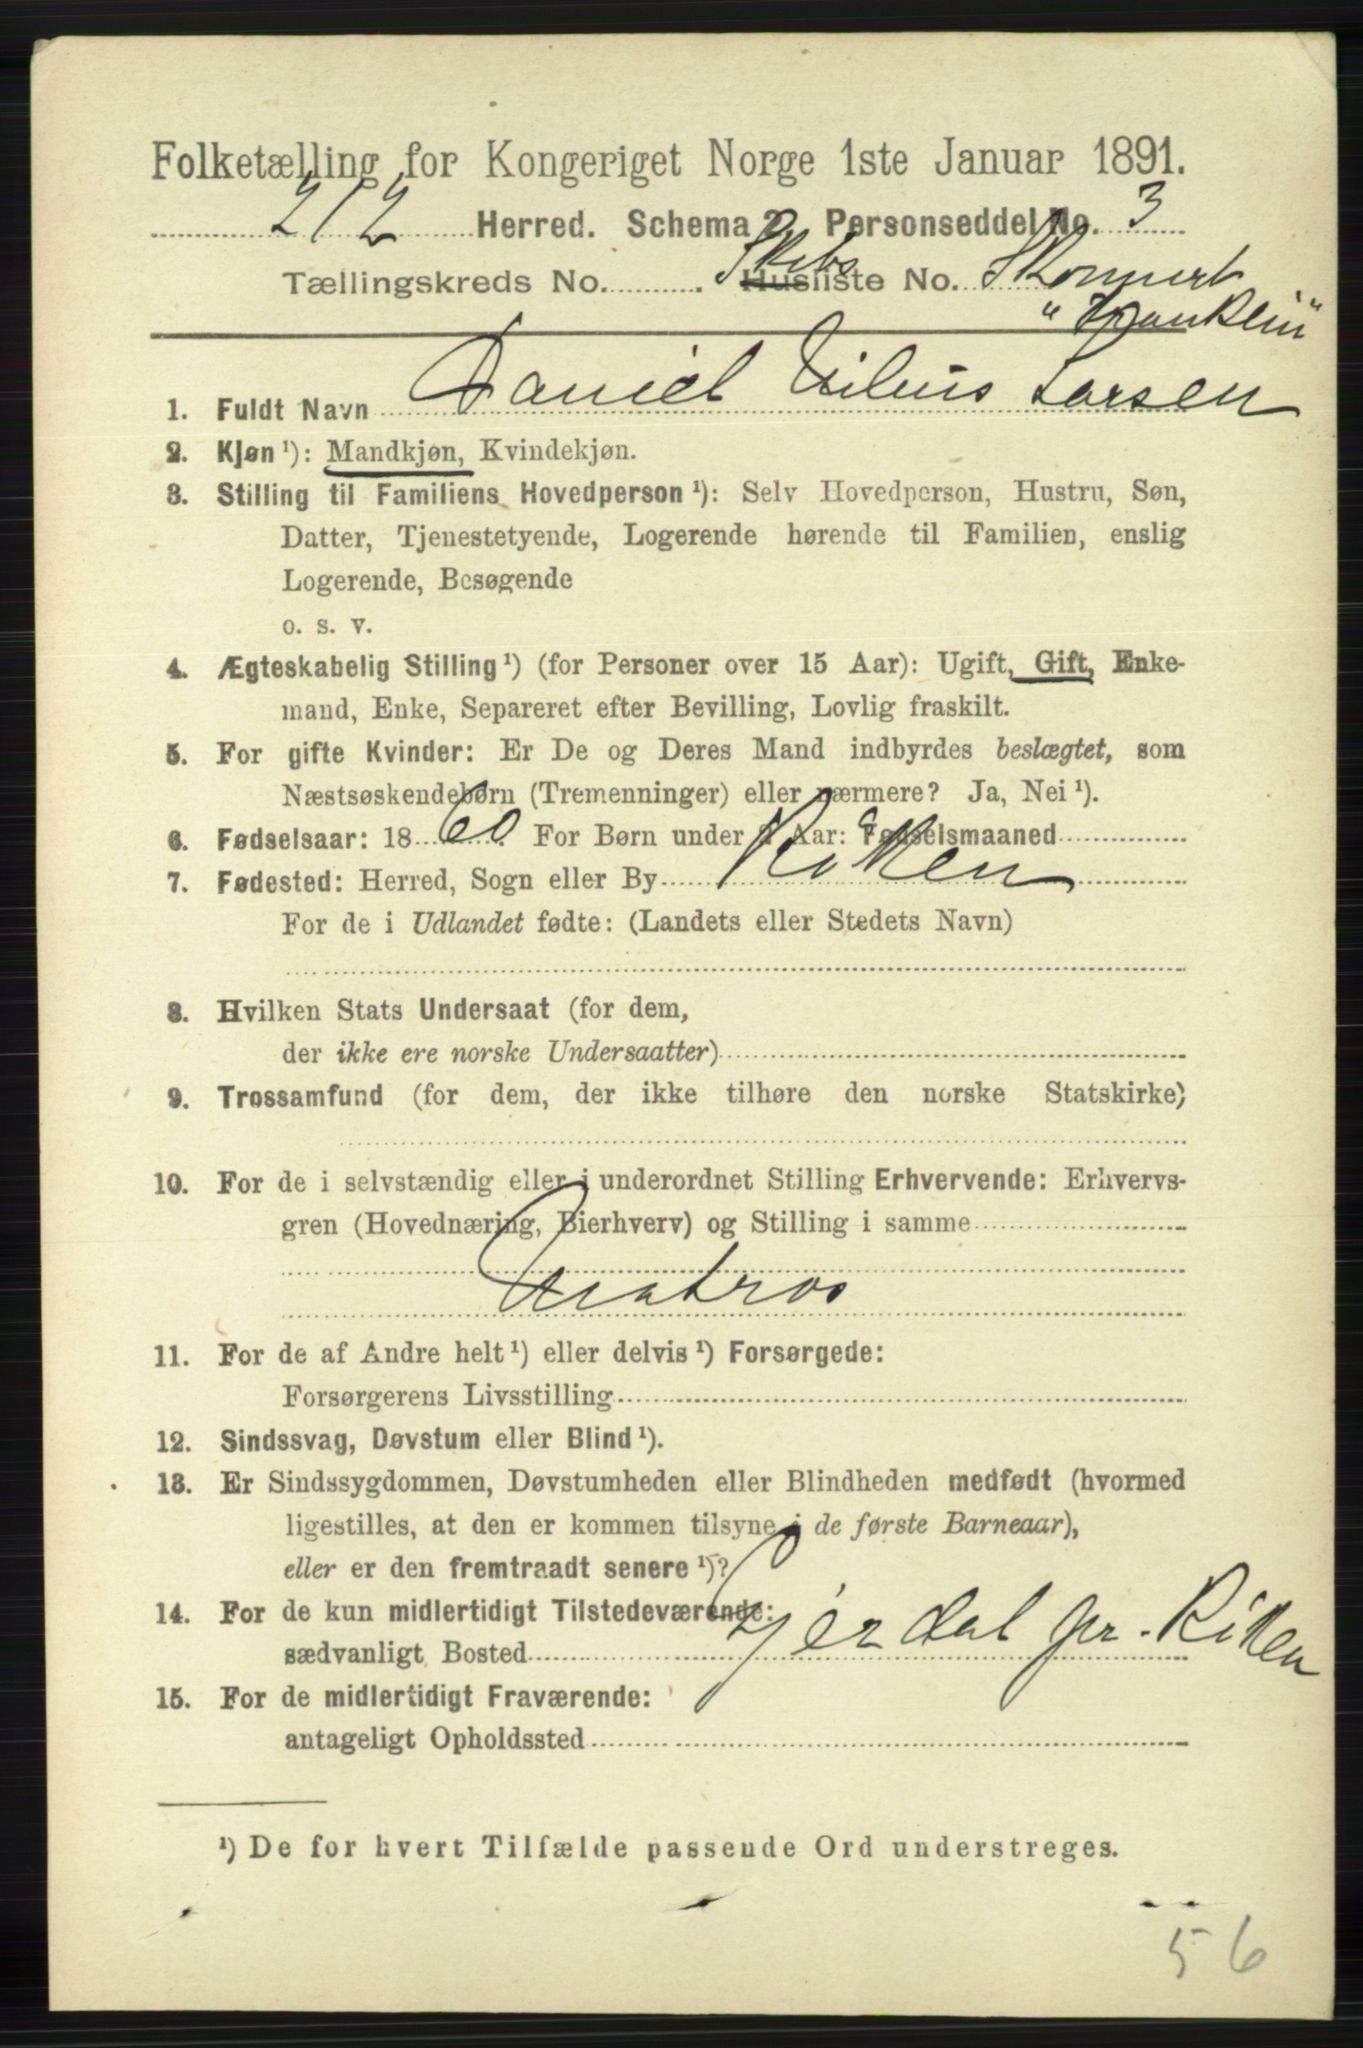 Folketælling for Kongeriget Norge 1ste Januar 1891.
212 Herred. Schema 2. Personseddel No. 3
Tællingskreds No. . Skibs Husliste No. Skonnert
"Franklin"
1. Fuldt Navn Daniel Nilius Larsen
2. Kjøn ¹): Mandkjøn, Kvindekjøn.
3. Stilling til Familiens Hovedperson ¹): Selv Hovedperson, Hustru, Søn,
Datter, Tjenestetyende, Logerende hørende til Familien, enslig
Logerende, Besøgende
o. s. v.
4. Ægteskabelig Stilling ¹) (for Personer over 15 Aar): Ugift, Gift, Enke-
mand, Enke, Separeret efter Bevilling, Lovlig fraskilt.
5. For gifte Kvinder: Er De og Deres Mand indbyrdes beslægtet, som
Næstsøskendebørn (Tremenninger) eller nærmere? Ja, Nei ¹).
6. Fødselsaar: 1860 For Børn under 2 Aar: Fødselsmaaned
7. Fødested: Herred, Sogn eller By Röken
For de i Udlandet fødte: (Landets eller Stedets Navn)
8. Hvilken Stats Undersaat (for dem,
der ikke ere norske Undersaatter)
9. Trossamfund (for dem, der ikke tilhøre den norske Statskirke)
10. For de i selvstændig eller i underordnet Stilling Erhvervende: Erhvervs-
gren (Hovednæring, Bierhverv) og Stilling i samme
Matros
11. For de af Andre helt ¹) eller delvis ¹) Forsørgede:
Forsørgerens Livsstilling
12. Sindssvag, Døvstum eller Blind ¹).
13. Er Sindssygdommen, Døvstumheden eller Blindheden medfødt (hvormed
ligestilles, at den er kommen tilsyne i de første Barneaar),
eller er den fremtraadt senere ¹)?
14. For de kun midlertidigt Tilstedeværende:
sædvanligt Bosted Gjerdal pr. Röken
15. For de midlertidigt Fraværende:
antageligt Opholdssted
¹) De for hvert Tilfælde passende Ord understreges.
56